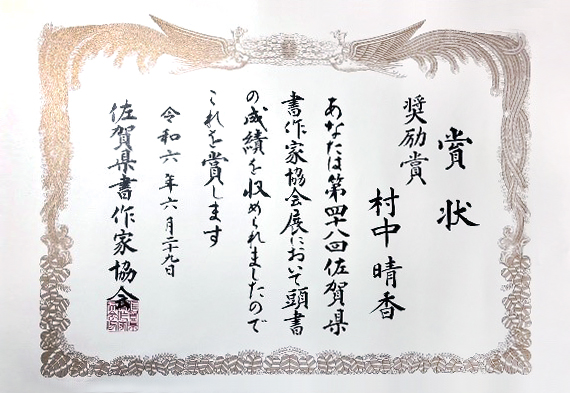 賞状
奨励賞
村中晴香
あなたは第四十八回佐賀県
書作家協会展において頭書
の成績を収められましたので
これを賞します
令和六年六月二十九日
佐賀県書作家協会